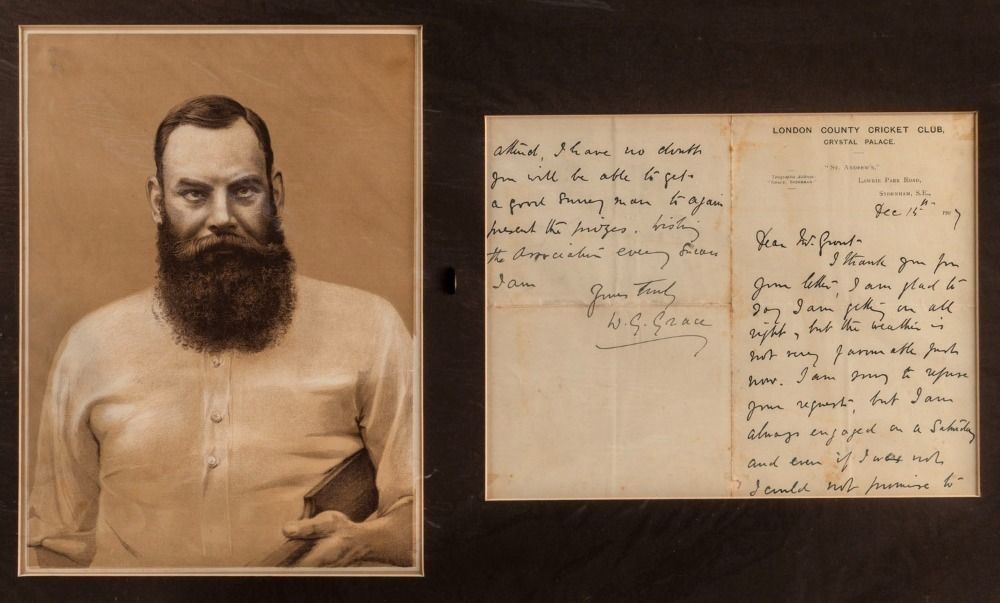 LONDON COUNTY CRICKET CLUB,
CRYSTAL PALACE.
"ST. ANDREW'S,"
Telegraphic Address
"GRACE, SYDENHAM."
LAWRIE PARK ROAD,
SYDENHAM, S.E.,
Dec 15th 1907
Dear Mr. Grout
I thank you for
your letter, I am glad to
say I am getting on all
right, but the weather is
not very favourable just
now. I am sorry to refuse
your request, but I am
always engaged on a Saturday
and even if I was not
I could not promise to
attend, I have no doubt
you will be able to get
a good Surrey man to again
present the prizes. Wishing
the Association every success
I am
Yours Truly
W. G. Grace